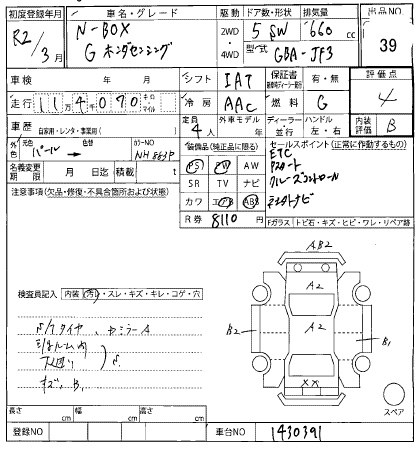 初度登録年月 車名・グレード 駆動 ドア数・形状 排気量 出品NO
R2/3月 N-BOX 2WD 4WD 5 SW 660 cc 39
G ホンダセンシング 型式 6BA-JF3
車検 年 月 シフト IAT 保証書 有・無 評価点
走行 11万4千090 冷房 AAC 燃料 G 4
車歴 自家用・レンタ・事業用( ) 定員 4人 外車モデル 年 ディーラー 並行 ハンドル 左・右 内装評価 B
外色 元色 パール → 色替 カラーNO NH883P
装備品(純正品に限る) セールスポイント(正常に作動するもの)
名義変更期限 月 日迄 積載 t
PS PW AW ETC
SR TV ナビ クルーズコントロール
カワ エアB ABS ナビ
R券 8110 円
注意事項(欠品・修復・不具合箇所および状態)
Fガラス トビ石・キズ・ヒビ・ワレ・リペア跡
AB2
A2
A2
B2 B1
XX
検査員記入 内装 汚れ・スレ・キズ・キレ・コゲ・穴
タイヤ、ミラーA
ルーム内
下廻り
キズ、B1
スペア
長さ cm 幅 cm 高さ cm
登録NO 車台NO 1430391